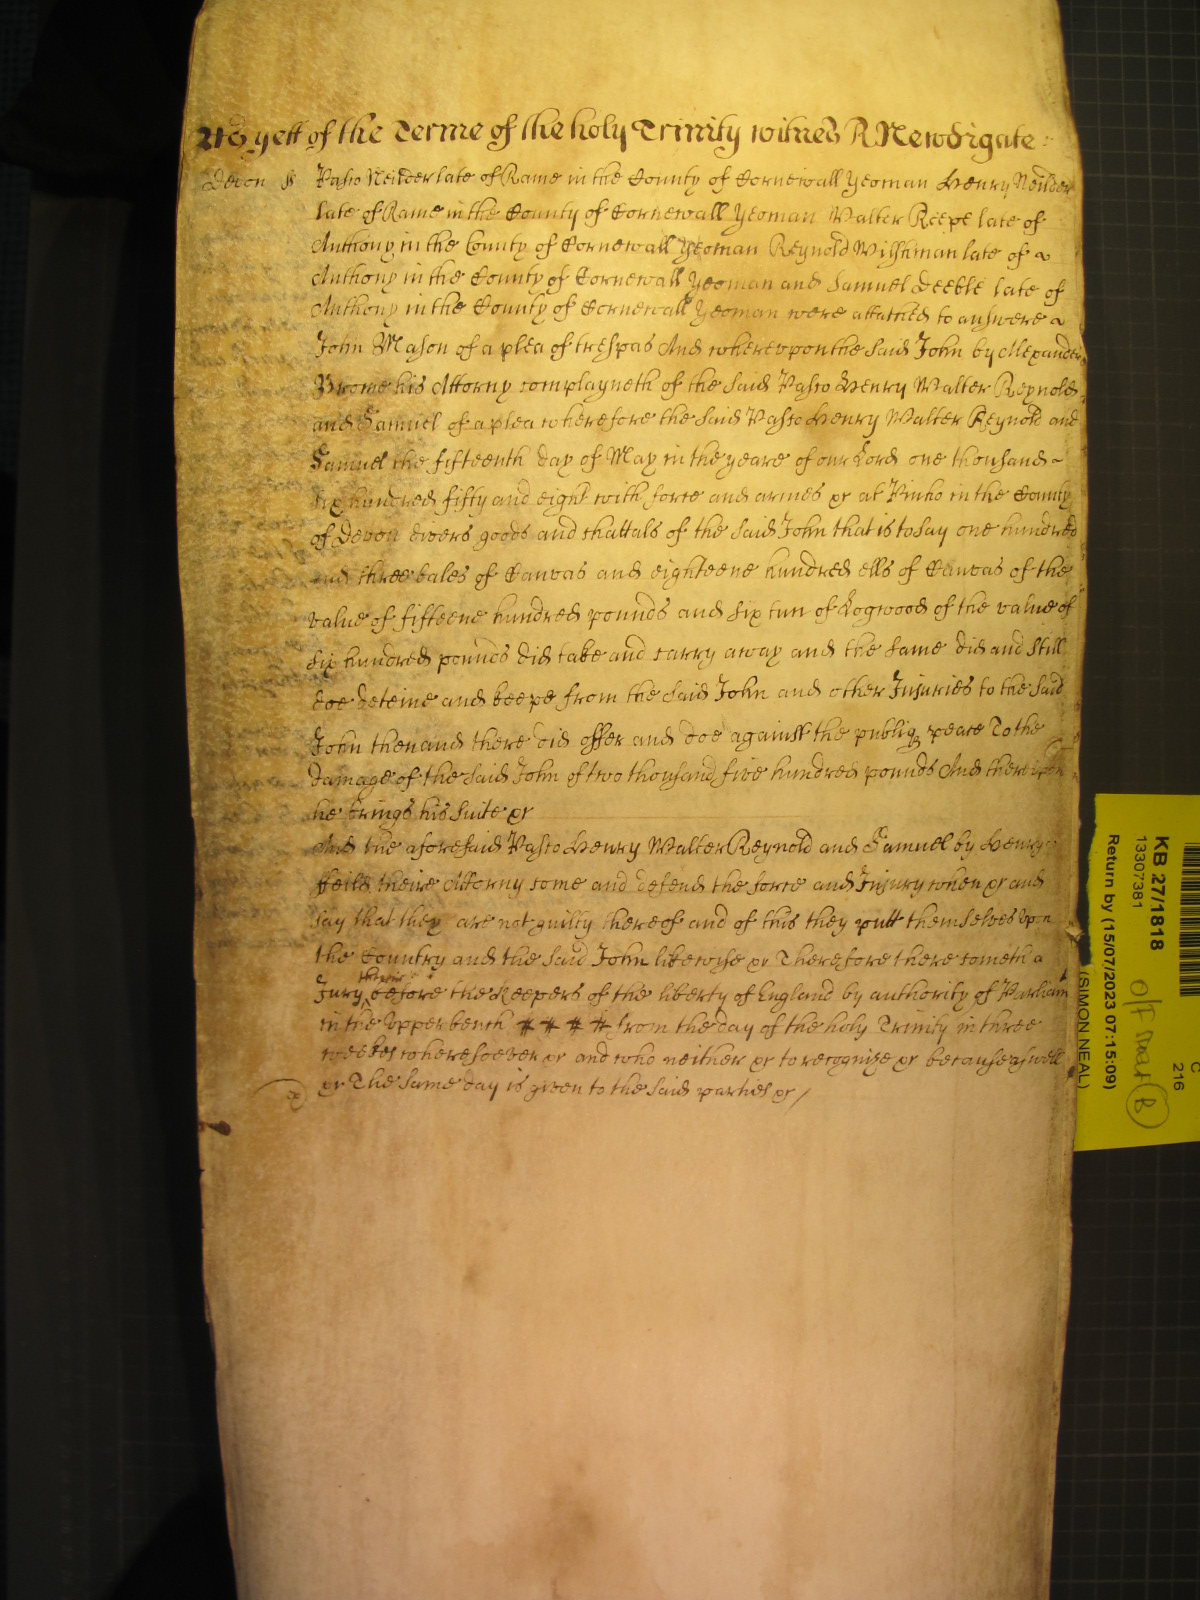 As yett of the Terme of the holy Trinity witnes R Newdigate
Devon ss Pasco Neilder late of Rame in the County of Cornewall Yeoman Henry Neilder
late of Rame in the County of Cornewall Yeoman Walter Keepe late of
Anthony in the County of Cornewall Yeoman Reynold Willsman late of
Anthony in the County of Cornewall Yeoman and Samuel Deeble late of
Anthony in the County of Cornewall Yeoman were attatched to answere
John Mason of a plea of trespas And wherevpon the said John by Allexander
Brome his Attorny complayneth of the said Pasco Henry Walter Reynold
and Samuel of a plea wherefore the said Pasco Henry Walter Reynold and
Samuel the fifteenth day of May in the yeare of our Lord one thousand
six hundred fifty and eight with force and armes &c at Pinho in the County
of Devon divers goods and chattals of the said John that is to say one hundred
and three bales of Canvas and eighteene hundred ells of Canvas of the
value of fifteene hundred pounds and six tun of Logwood of the value of
six hundred pounds did take and carry away and the same did and still
doe deteine and keepe from the said John and other Injuries to the said
John then and there did offer and doe against the publiq peace To the
damage of the said John of two thousand five hundred pounds And therevpon
he brings his suite &c
And the aforesaid Pasco Henry Walter Reynold and Samuel by Henry
ffeild theire Attorny come and defend the force and Injury when &c and
say that they are not guilty thereof and of this they putt themselves vpon
the Country and the said John likewise &c Therefore there cometh a
Jury before the Keepers of the liberty of England by authority of Parliam
in the Vpper bench from the day of the holy Trinity in three
weekes wheresoever &c and who neither &c to recognize &c because aswell
&c The same day is given to the said parties &c
KB 27/1818
13307381
Return by (15/07/2023 07:15:09)
(SIMON NEAL)
C
216
B